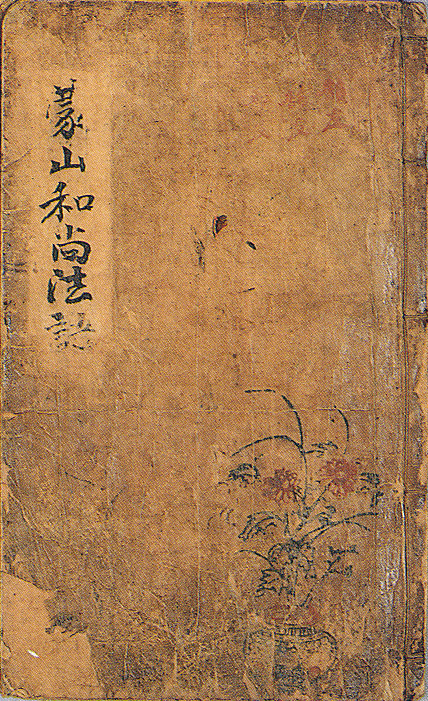 蒙山和尚法語